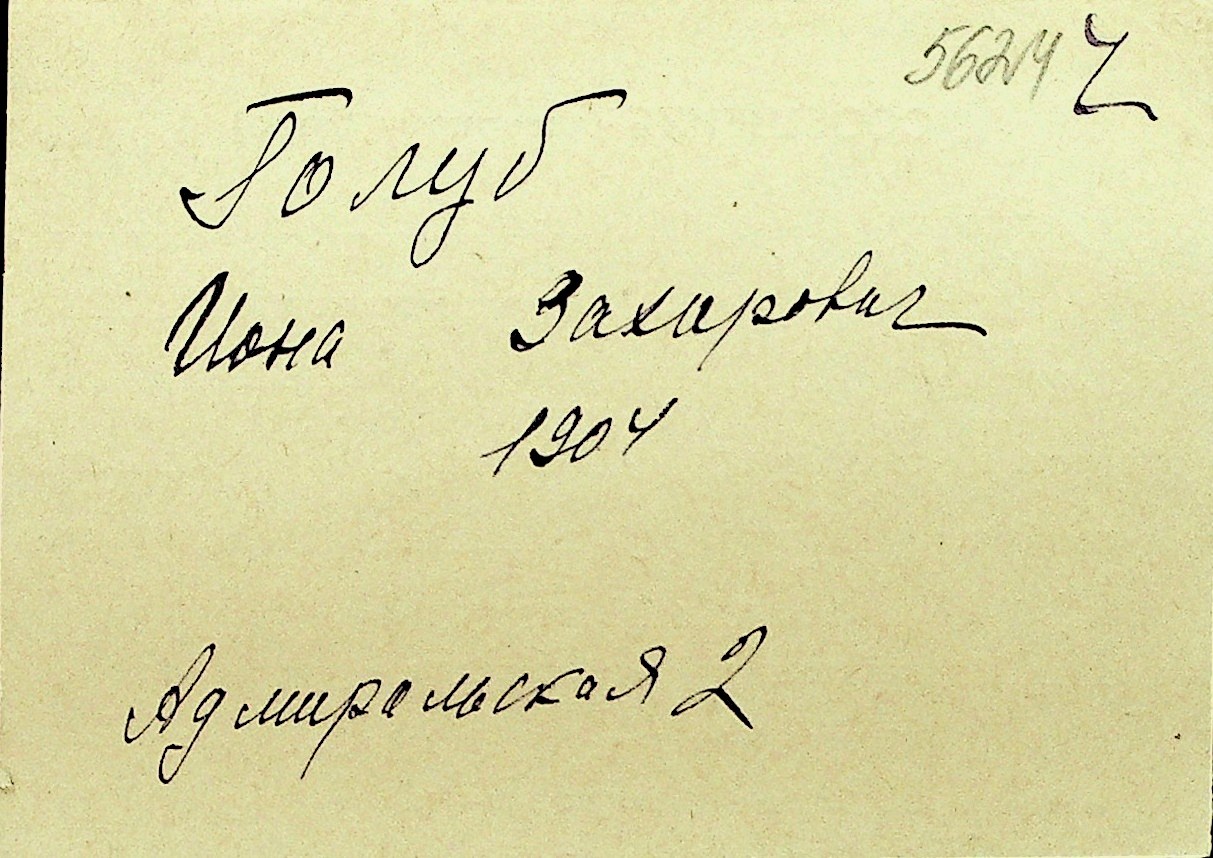 Голуб
Иона Захарович
1904
Адмиральская 2